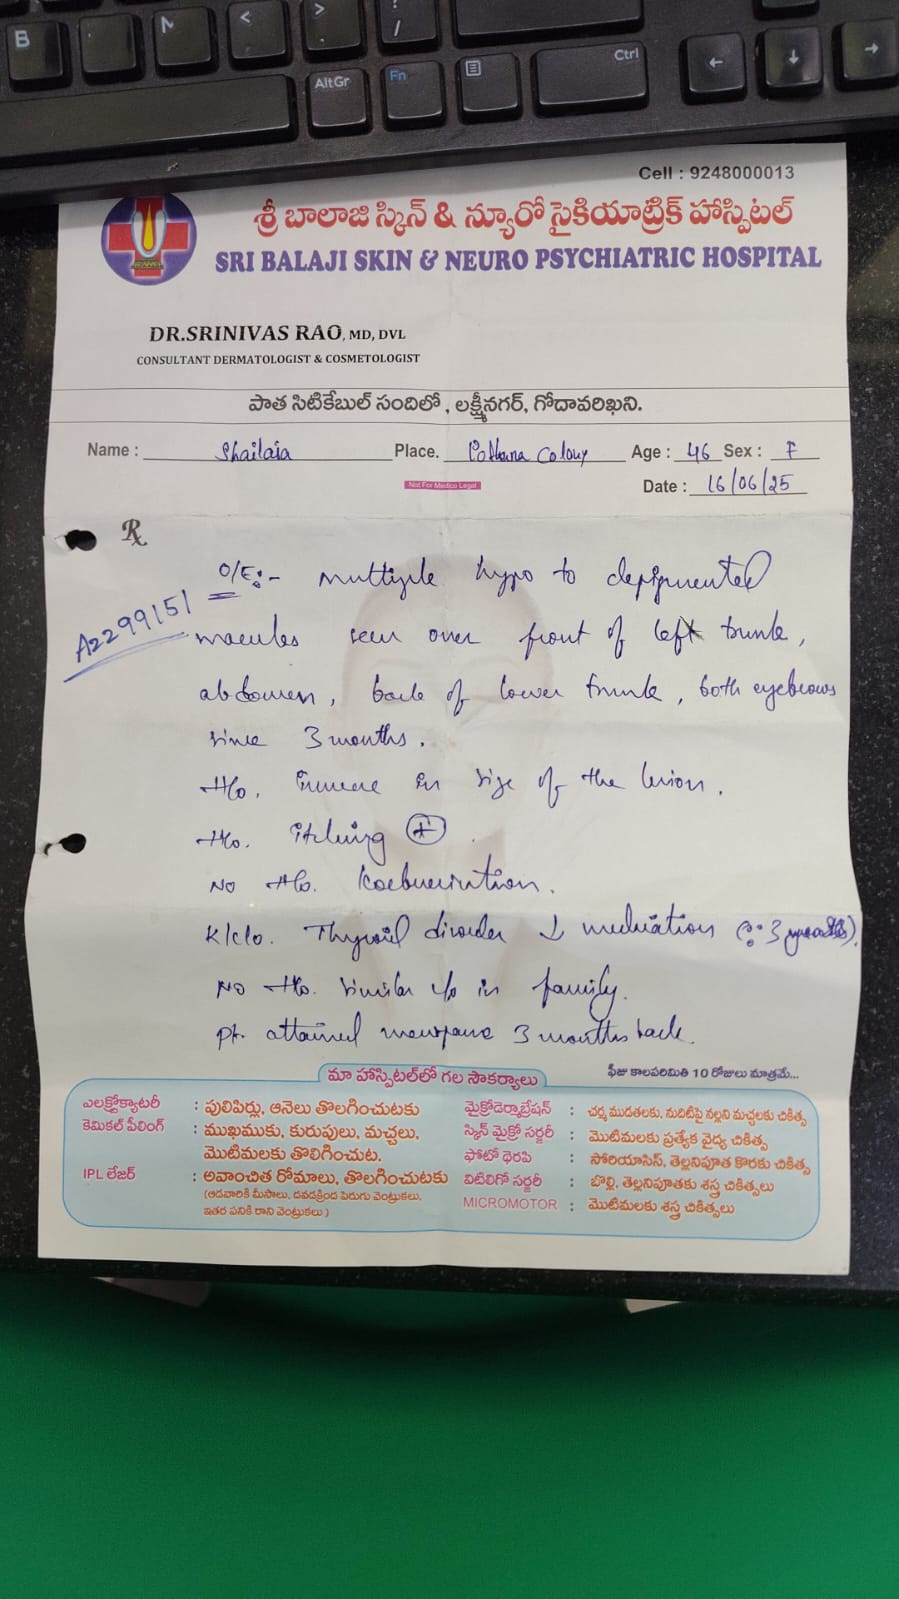 B
M
<
>
?
/
AltGr
Fn
Ctrl
Cell : 9248000013
శ్రీ బాలాజి స్కిన్ & న్యూరో సైకియాట్రిక్ హాస్పిటల్
SRI BALAJI SKIN & NEURO PSYCHIATRIC HOSPITAL
DR.SRINIVAS RAO, MD, DVL
CONSULTANT DERMATOLOGIST & COSMETOLOGIST
పాత సిటికేబుల్ సందిలో , లక్ష్మీనగర్, గోదావరిఖని.
Name : Shailaja Place. Pothana Colony Age : 46 Sex : F
Not For Medico Legal
Date : 16/06/25
Rx
O/E:- multiple hypo to depigmented
A2299151
macules seen over front of left trunk,
abdomen, back of lower trunk, both eyebrows
since 3 months.
H/o. increase in size of the lesion.
H/o. itching (+).
No H/o. Koebnerization.
K/c/o. Thyroid disorder ↓ medication 3
No H/o. similar c/o in family.
Pt. attained menopause 3 months back.
మా హాస్పిటల్‌లో గల సౌకర్యాలు
ఫీజు కాలపరిమితి 10 రోజులు మాత్రమే...
ఎలక్ట్రోక్యాటరీ : పులిపిర్లు, ఆనెలు తొలగించుటకు
కెమికల్ పీలింగ్ : ముఖముకు, కురుపులు, మచ్చలు,
మొటిమలకు తొలిగించుట.
IPL లేజర్ : అవాంచిత రోమాలు, తొలగించుటకు
(ఆడవారికి మీసాలు, దవడక్రింద పెరుగు వెంట్రుకలు,
ఇతర పనికి రాని వెంట్రుకలు )
మైక్రోడెర్మాబ్రేషన్ : చర్మ ముడతలకు, నుదిటిపై నల్లని మచ్చలకు చికిత్స
స్కిన్ మైక్రో సర్జరీ : మొటిమలకు ప్రత్యేక వైద్య చికిత్స
ఫోటో థెరపి : సోరియాసిస్, తెల్లనిపూత కొరకు చికిత్స
విటిలిగో సర్జరీ : బొల్లి, తెల్లనిపూతకు శస్త్ర చికిత్సలు
MICROMOTOR : మొటిమలకు శస్త్ర చికిత్సలు